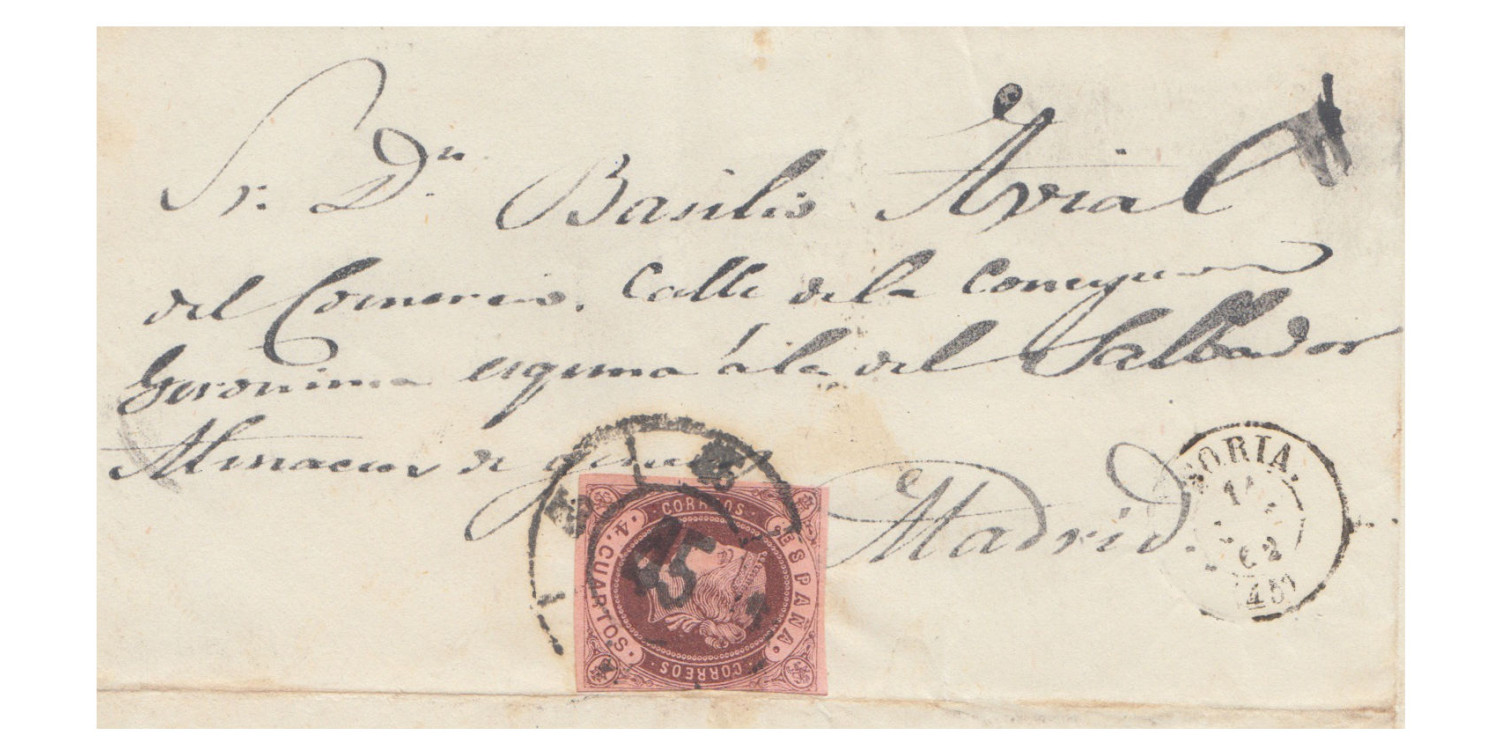 Sr. Dn. Basilio Avial
del Comercio. Calle de la Concepcion
Geronima esquina á la del Salbador
Almacen de generos
Madrid.
CORREOS
ESPAÑA.
4. CUARTOS.
CORREOS
45
SORIA.
62
(45)